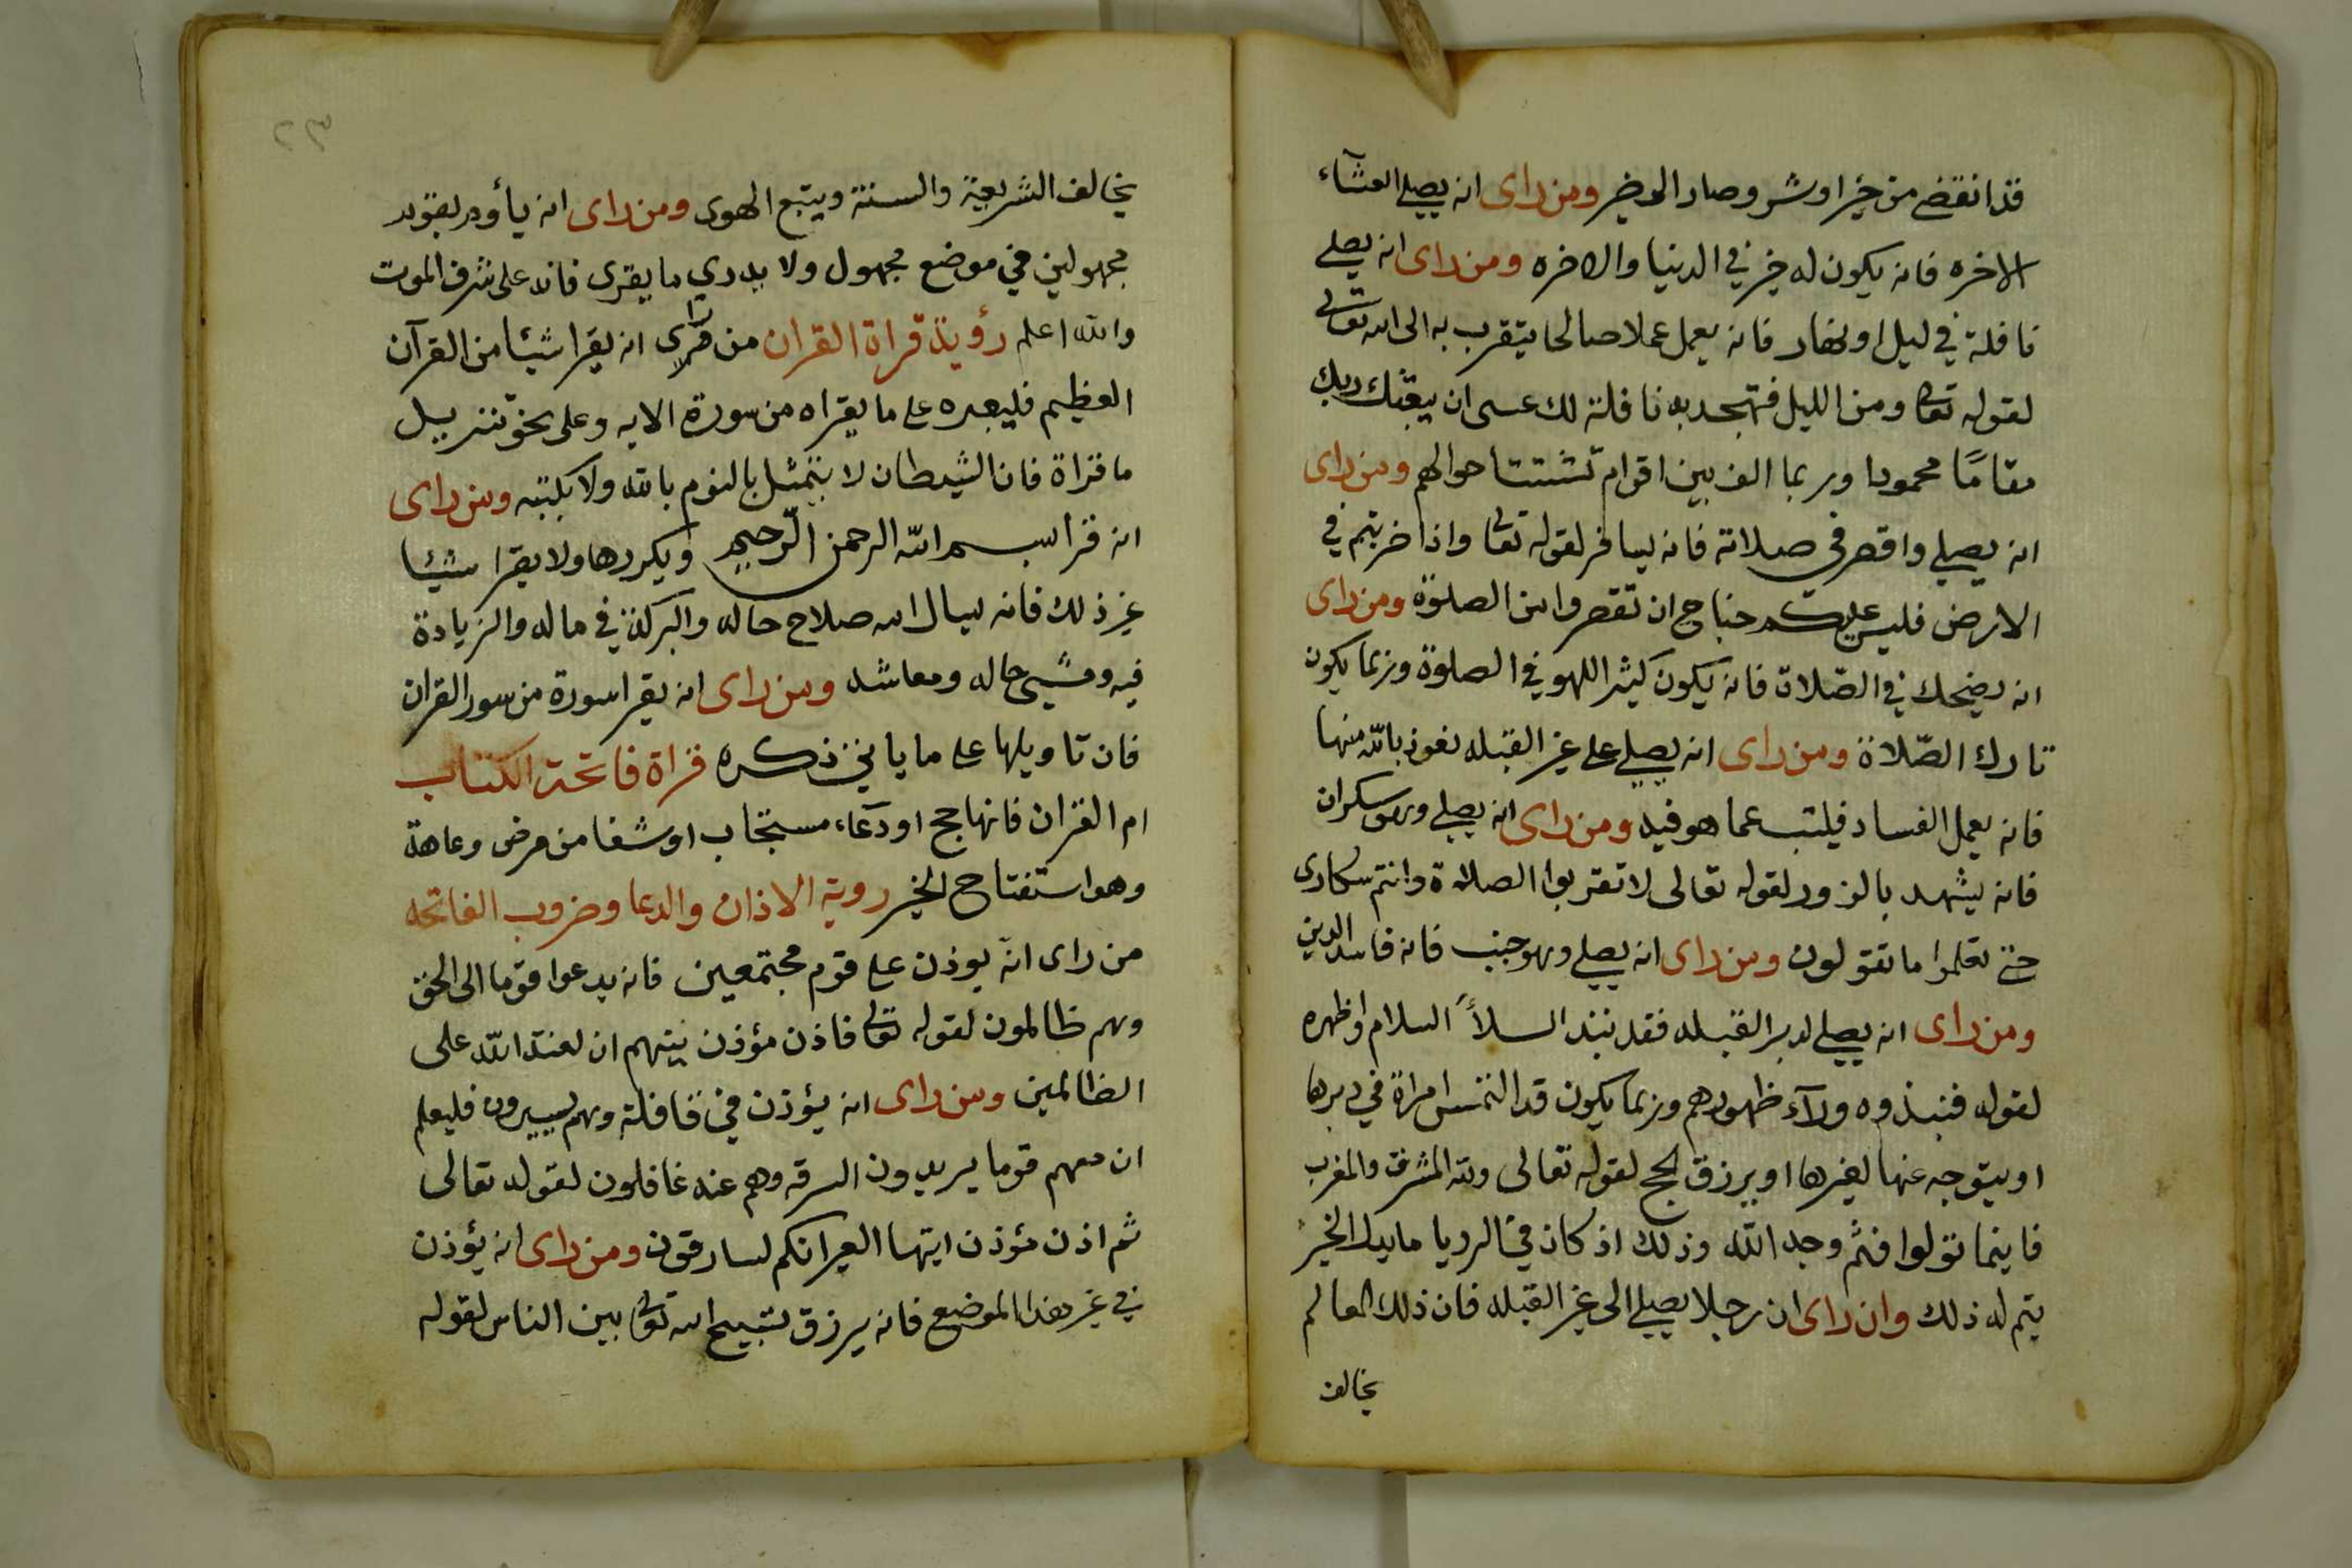 قد انقضى من خير او شر وصار الى خير ومن راى انه يصلي العشآء
الاخره فانه يكون له خير في الدنيا والاخره ومن راى انه يصلي
نافلة في ليل او نهار فانه يعمل عملا صالحا يتقرب به الى الله تعالى
لقوله تعالى ومن الليل فتهجد به نافلة لك عسى ان يبعثك ربك
مقامًا محمودا وربما الف بين اقوام تشتت احوالهم ومن راى
انه يصلي واقصر في صلاته فانه يسافر لقوله تعالى واذا ضربتم في
الارض فليس عليكم جناح ان تقصروا من الصلوة ومن راى
انه يضحك في الصّلاة فانه يكون كثير اللهو في الصلوة وربما يكون
تارك الصّلاة ومن راى انه يصلي على غير القبله نعوذ بالله منها
فانه يعمل الفساد فليتب عما هو فيه ومن راى انه يصلي وهو سكران
فانه يشهد بالزور لقوله تعالى لا تقربوا الصلاة وانتم سكارى
حتى تعلموا ما تقولون ومن راى انه يصلي وهو جنب فانه فاسد الدين
ومن راى انه يصلي لدبر القبله فقد نبذ السلأ السلام وظهره
لقوله فنبذوه ورآء ظهورهم وربما يكون قد التمس امراة في دبرها
او يتوجه عنها لغيرها او يرزق الحج لقوله تعالى ولله المشرق والمغرب
فاينما تولوا فثم وجه الله وذلك اذ كان في الرديا ما يدل الخير
يتم له ذلك وان راى ان رجلا يصلي الى غير القبله فان ذلك العالم
يخالف
٢٣
يخالف الشريعة والسنة ويتبع الهوى ومن راى انه يأوم بقوم
مجهولين في موضع مجهول ولا يدري ما يقرى فانه على شرف الموت
والله اعلم رؤية قراة القران من راى انه يقرا شيئا من القرآن
العظيم فليعبره على ما يقراه من سورة الايه وعلى نحو تنزيل
ما قراة فان الشيطان لا يتمثل بالنوم بالله ولا بكتبه ومن راى
انه قرا بسم الله الرحمن الرّحيم ويكررها ولا يقرا شيئا
غير ذلك فانه يسال الله صلاح حاله والبركة في ماله والزيادة
فيه ومشي حاله ومعاشه ومن راى انه يقرا سورة من سور القران
فان تاويلها على ما ياتي ذكره قراة فاتحة الكتاب
ام القران فانها حج او دعآء مستجاب او شفا من مرض وعاهة
وهو استفتاح الخير روية الاذان والدعا وضروب الفاتحه
من راى انّه يوذن على قوم مجتمعين فانه يدعوا قوما الى الحق
وهم ظالمون لقوله تعالى فاذن مؤذن بينهم ان لعنة الله على
الظالمين ومن راى انه يؤذن في قافلة وهم يسيرون فليعلم
ان معهم قوما يريدون السرقه وهم عنه غافلون لقوله تعالى
ثم اذن مؤذن ايتها العير انكم لسارقون ومن راى انه يؤذن
في غير هذا الموضع فانه يرزق تسبيح الله تعالى بين الناس لقوله